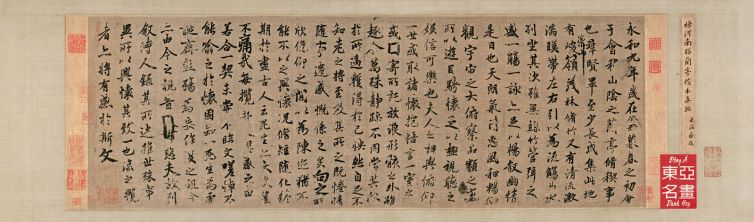 褚河南臨蘭亭絹本真跡
永和九年歲在癸丑暮春之初會
于會稽山陰之蘭亭脩稧事
也羣賢畢至少長咸集此地
有崇山峻領茂林脩竹又有清流激
湍暎帶左右引以為流觴曲水
列坐其次雖無絲竹管弦之
盛一觴一詠亦足以暢敘幽情
是日也天朗氣清惠風和暢仰
觀宇宙之大俯察品類之盛
所以遊目騁懷足以極視聽之
娛信可樂也夫人之相與俯仰
一世或取諸懷抱悟言一室之內
或因寄所託放浪形骸之外雖
趣舍萬殊靜躁不同當其欣
於所遇蹔得於己怏然自足不
知老之將至及其所之既惓情
隨事遷感慨係之矣向之所
欣俛仰之閒以為陳迹猶不
能不以之興懷況脩短隨化終
期於盡古人云死生亦大矣豈
不痛哉每攬昔人興感之由
若合一契未嘗不臨文嗟悼不
能喻之於懷固知一死生為虛
誕齊彭殤為妄作後之視今
亦由今之視昔悲夫故列
敘時人錄其所述雖世殊事
異所以興懷其致一也後之攬
者亦將有感於斯文
Đông Á
東亞
名畫
Danh Họa